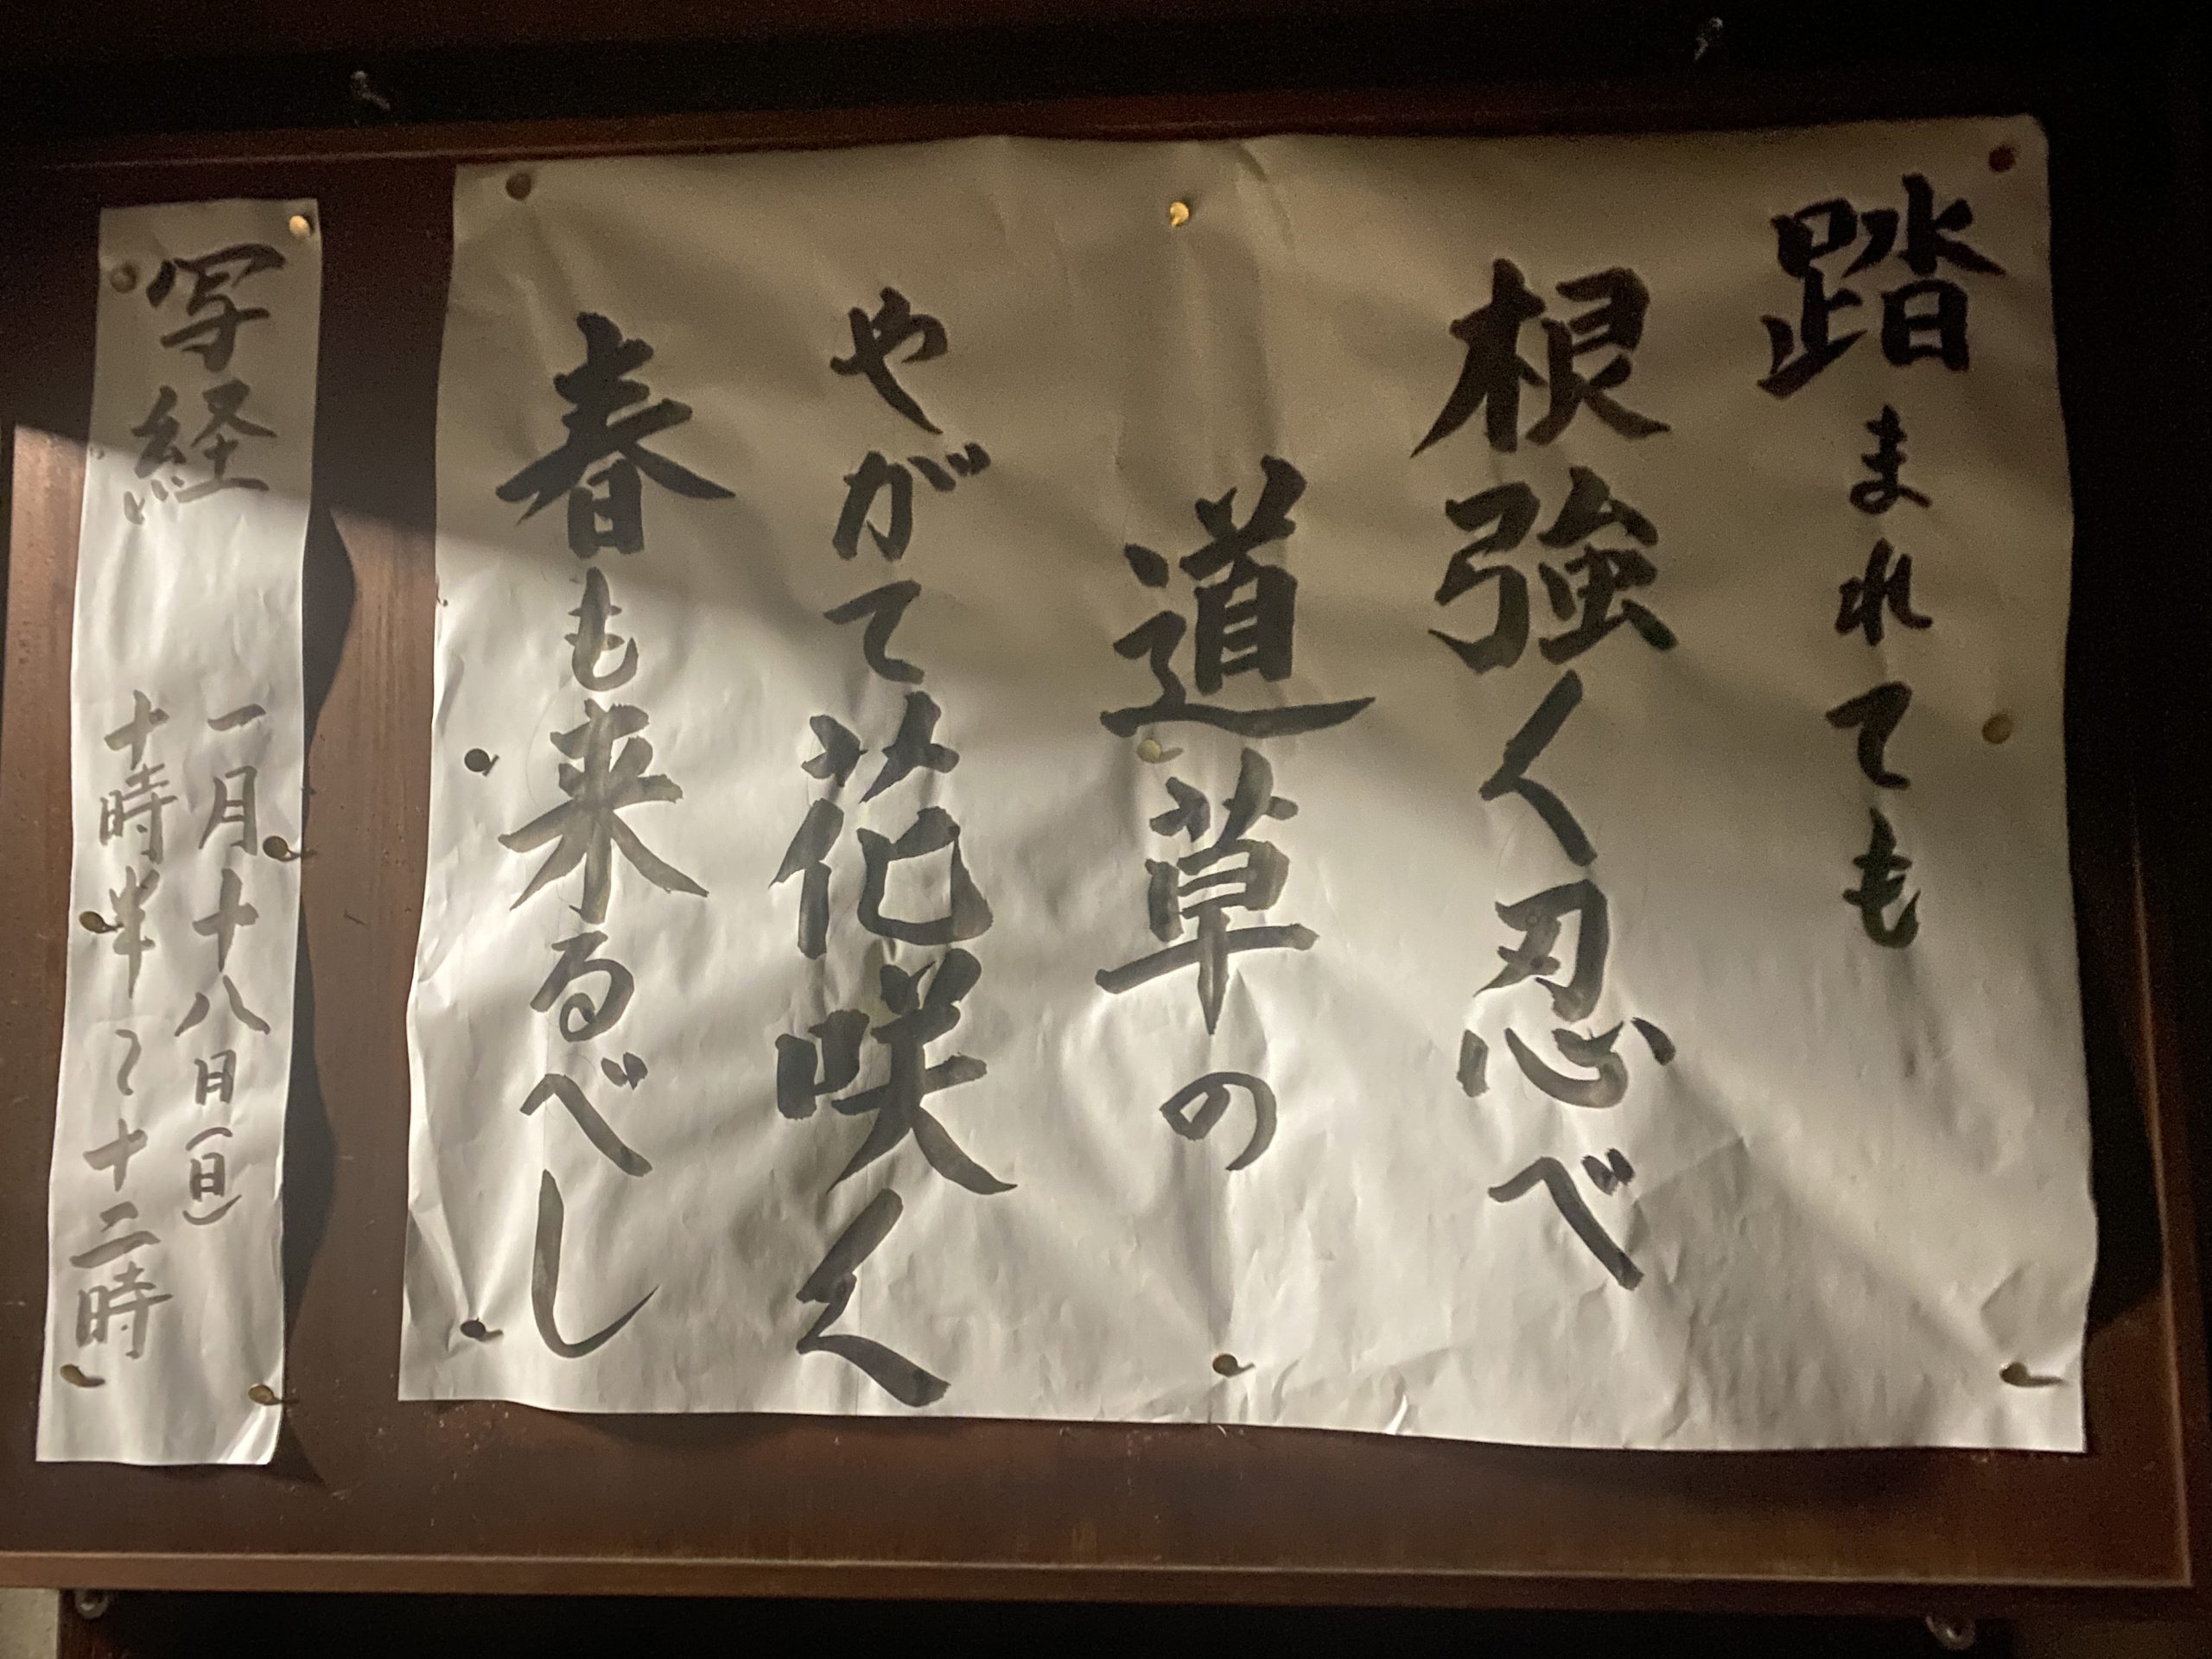 踏まれても
根強く忍べ
道草の
やがて花咲く
春も来るべし
写経
一月十八日(日)
十時半〜十二時